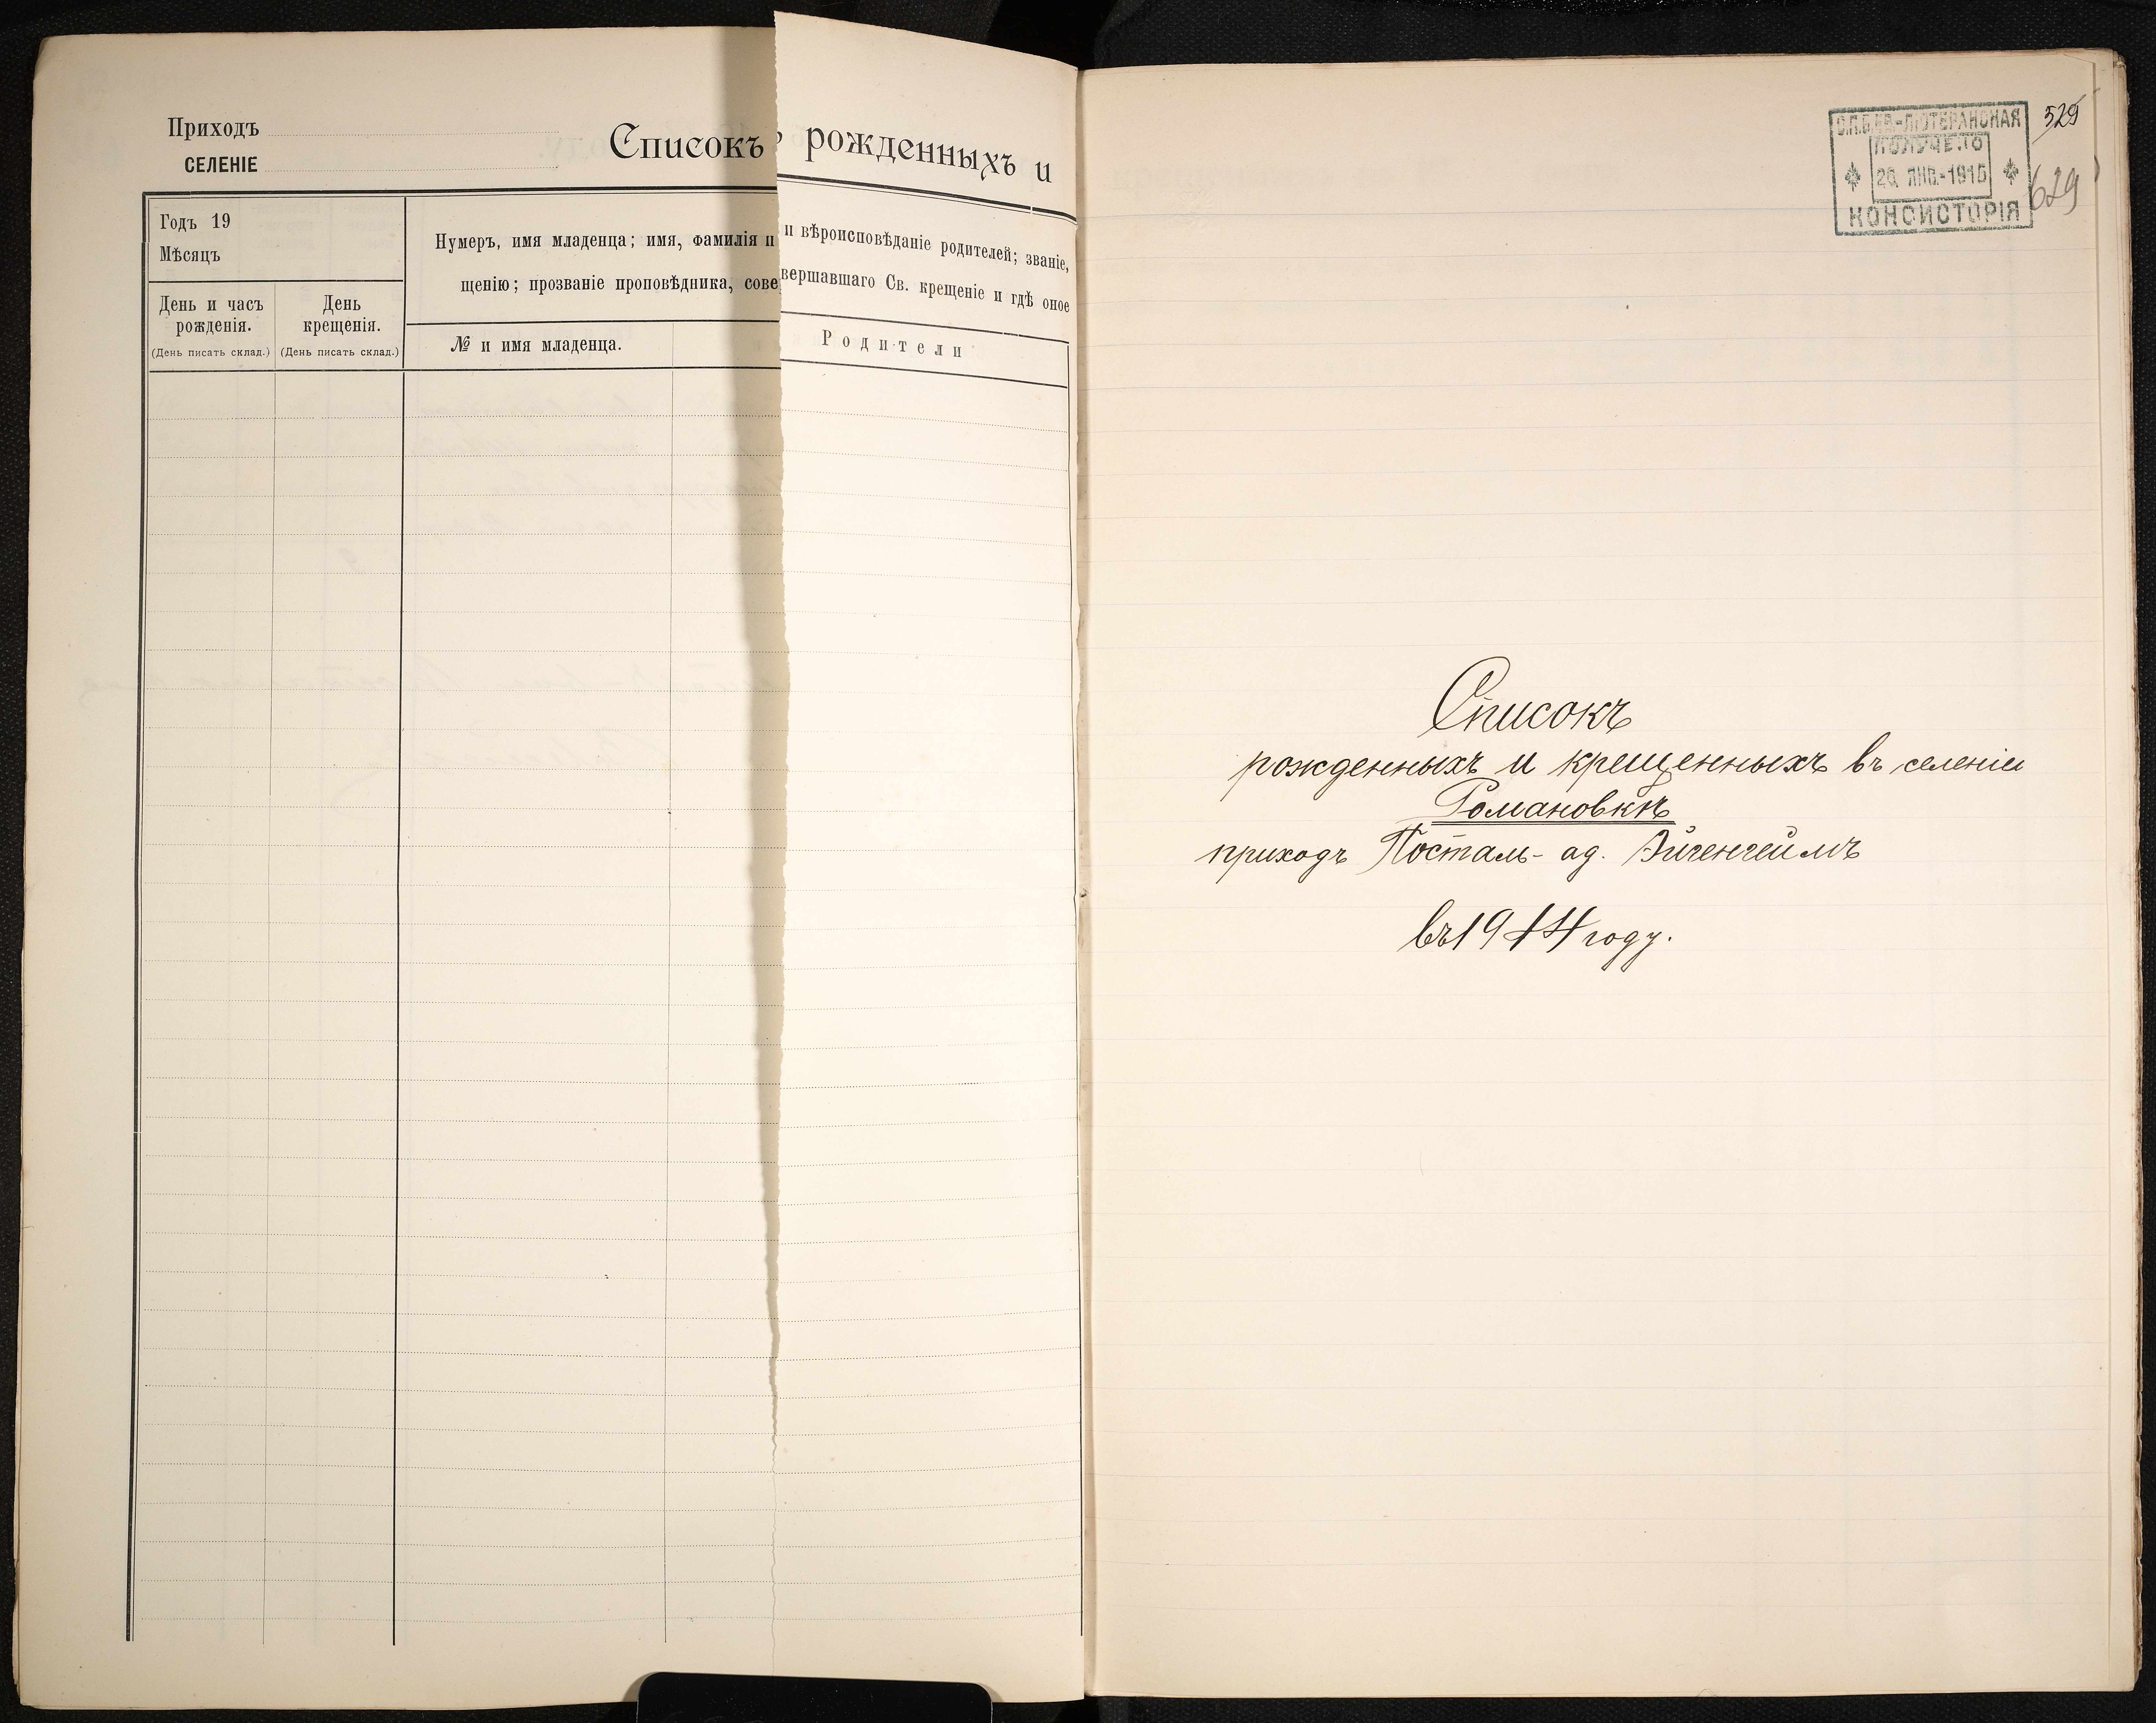 Приходъ
СЕЛЕНІЕ
Списокъ рожденныхъ и
Годъ 19
Мѣсяцъ
Нумеръ, имя младенца; имя, фамилія и вѣроисповѣданіе родителей; званіе,
щенію; прозваніе проповѣдника, совершавшаго Св. крещеніе и гдѣ оное
День и часъ рожденія.
(День писать склад.)
День крещенія.
(День писать склад.)
№ и имя младенца.
Родители
С.П.Б. ЕВ.-ЛЮТЕРАНСКАЯ
ПОЛУЧЕНО
20 ЯНВ.-1915
КОНСИСТОРІЯ
529
629
Списокъ
рожденныхъ и крещенныхъ въ селеніи
Романовкѣ
приходъ Посталь- ад. Эйгенгеймъ
въ 1914 году.